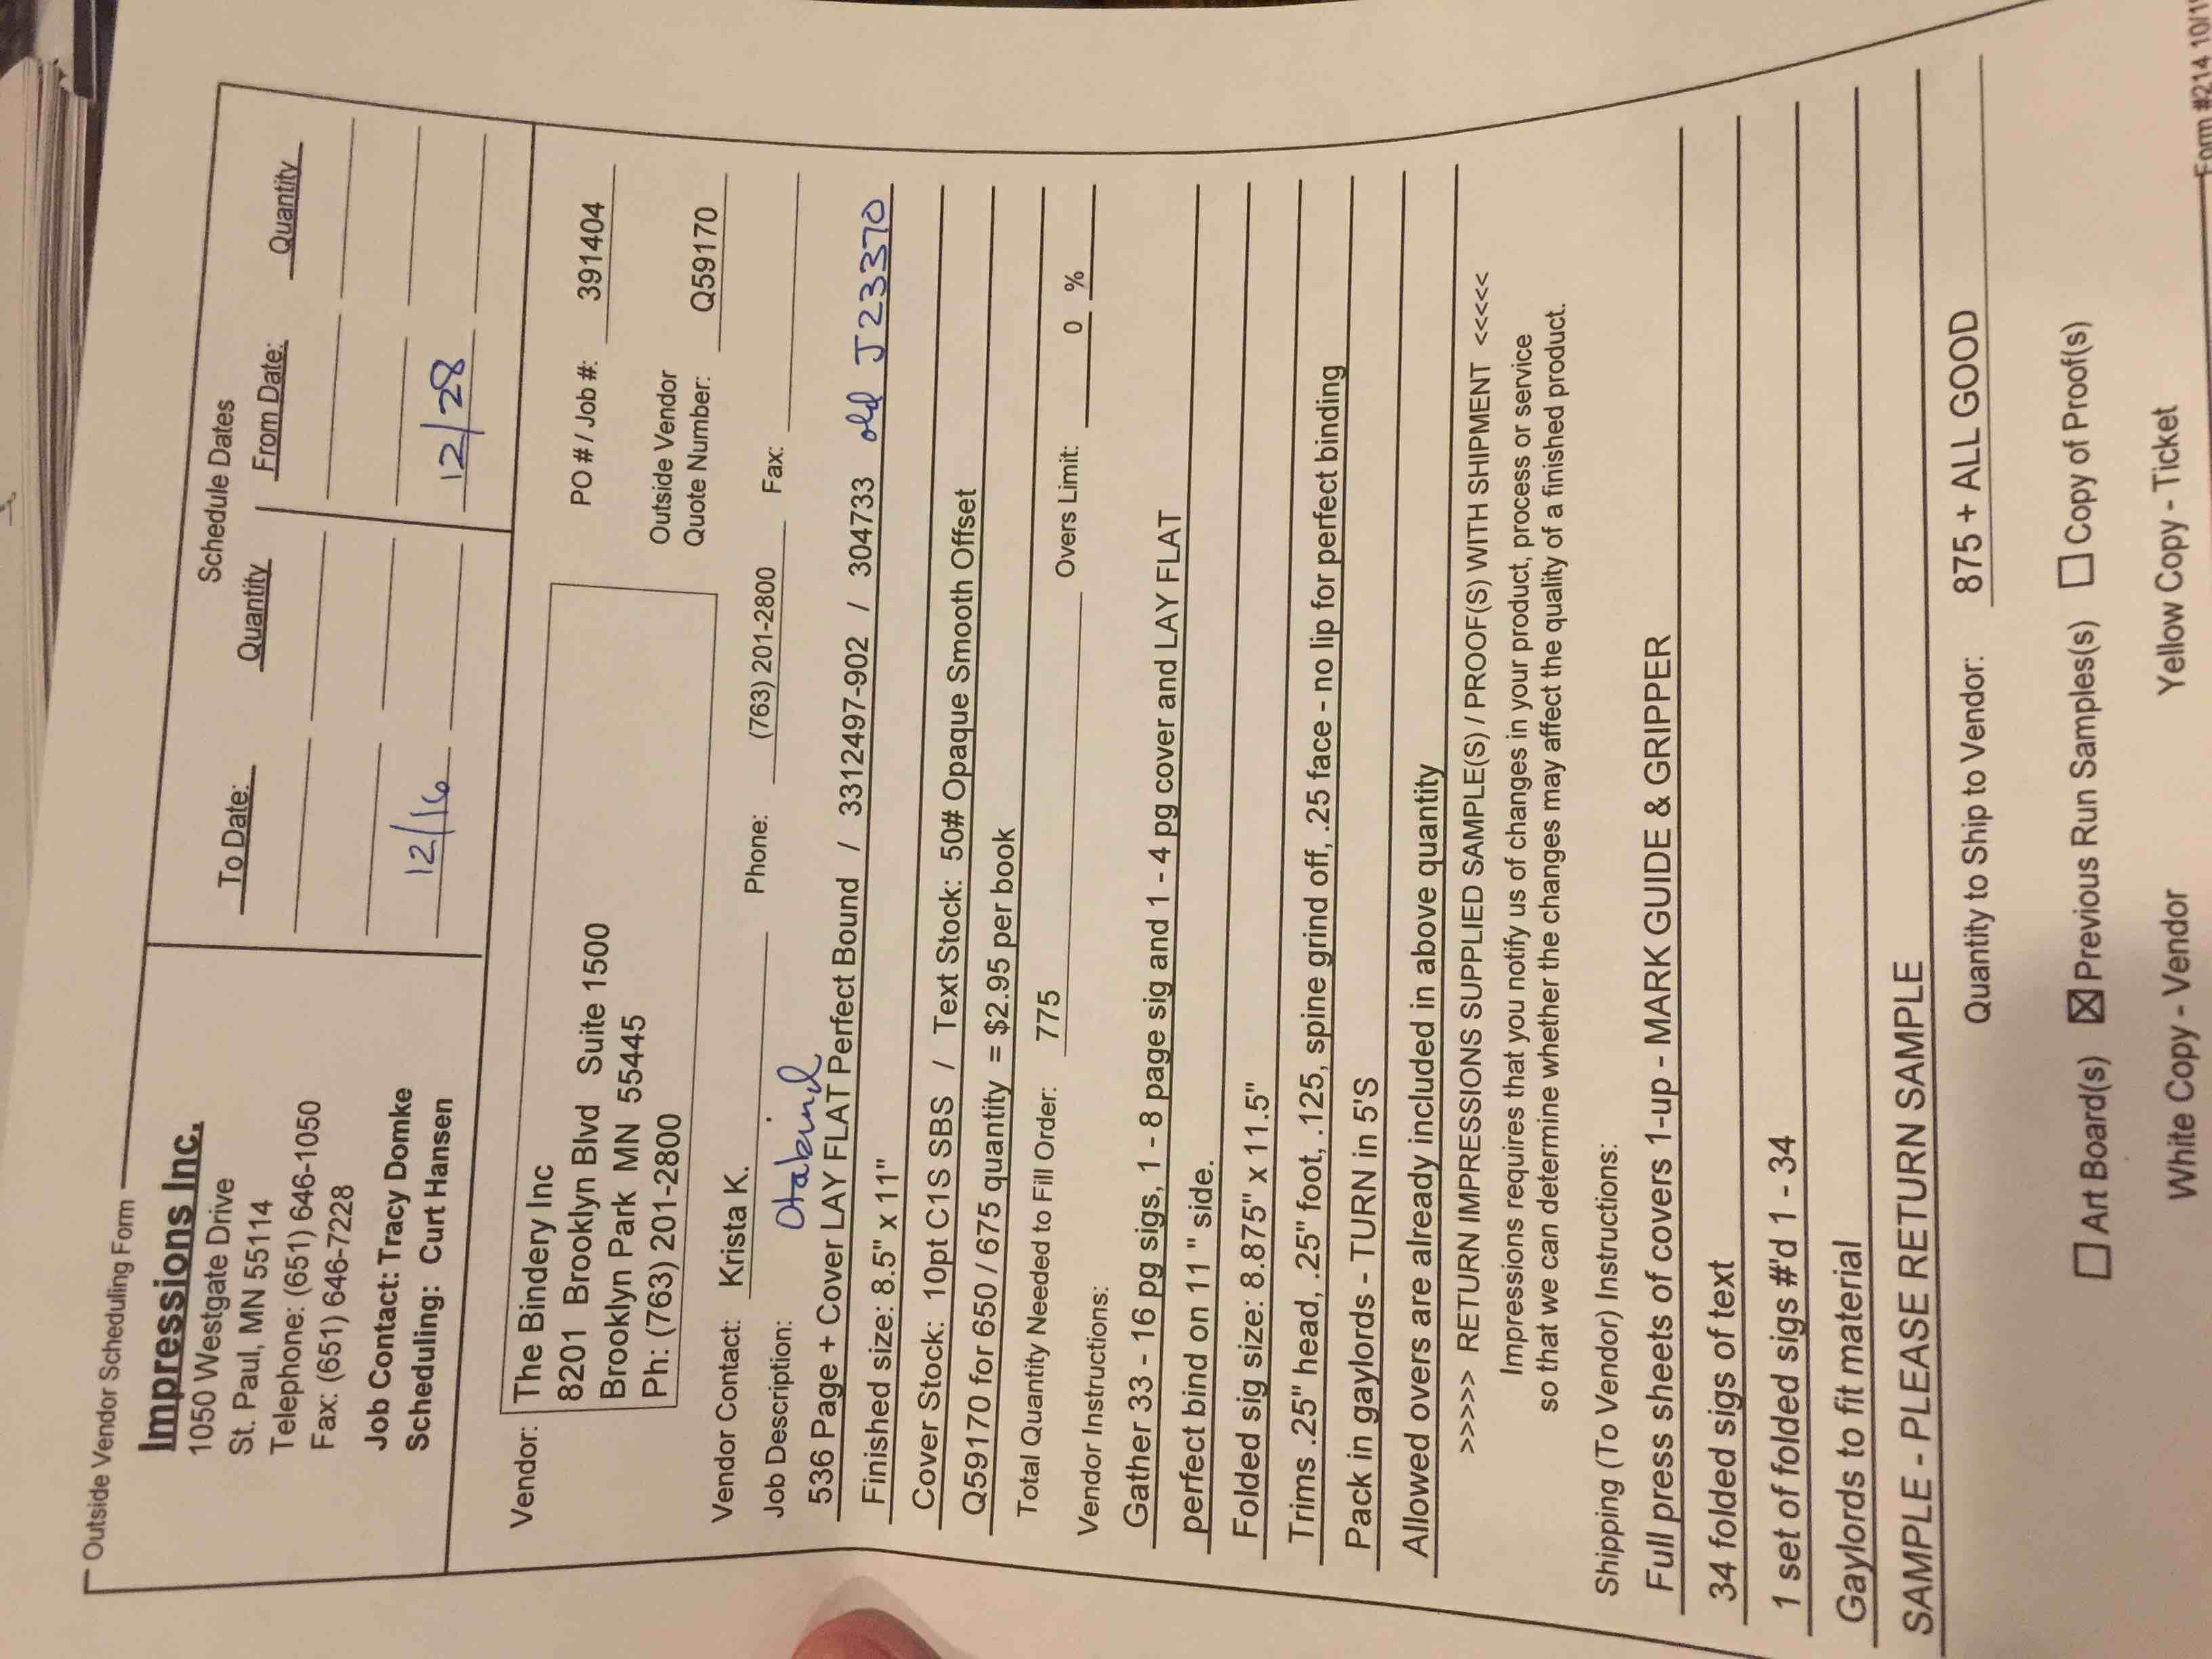 Outside Vendor Scheduling Form
Impressions Inc.
1050 Westgate Drive
St. Paul, MN 55114
Telephone: (651) 646-1050
Fax: (651) 646-7228
Job Contact: Tracy Domke
Scheduling: Curt Hansen
Schedule Dates
To Date: Quantity From Date: Quantity
12/16 12/28
Vendor: The Bindery Inc
8201 Brooklyn Blvd Suite 1500
Brooklyn Park MN 55445
Ph: (763) 201-2800
PO # / Job #: 391404
Outside Vendor
Quote Number: Q59170
Vendor Contact: Krista K. Phone: (763) 201-2800 Fax:
Job Description: Otabind
536 Page + Cover LAY FLAT Perfect Bound / 3312497-902 / 304733 old J23370
Finished size: 8.5" x 11"
Cover Stock: 10pt C1S SBS / Text Stock: 50# Opaque Smooth Offset
Q59170 for 650 / 675 quantity = $2.95 per book
Total Quantity Needed to Fill Order: 775 Overs Limit: 0 %
Vendor Instructions:
Gather 33 - 16 pg sigs, 1 - 8 page sig and 1 - 4 pg cover and LAY FLAT
perfect bind on 11 " side.
Folded sig size: 8.875" x 11.5"
Trims .25" head, .25" foot, .125, spine grind off, .25 face - no lip for perfect binding
Pack in gaylords - TURN in 5'S
Allowed overs are already included in above quantity
>>>>> RETURN IMPRESSIONS SUPPLIED SAMPLE(S) / PROOF(S) WITH SHIPMENT <<<<<
Impressions requires that you notify us of changes in your product, process or service
so that we can determine whether the changes may affect the quality of a finished product.
Shipping (To Vendor) Instructions:
Full press sheets of covers 1-up - MARK GUIDE & GRIPPER
34 folded sigs of text
1 set of folded sigs #'d 1 - 34
Gaylords to fit material
SAMPLE - PLEASE RETURN SAMPLE
Quantity to Ship to Vendor: 875 + ALL GOOD
☐ Art Board(s) ☒ Previous Run Samples(s) ☐ Copy of Proof(s)
White Copy - Vendor Yellow Copy - Ticket
Form #214 10/1